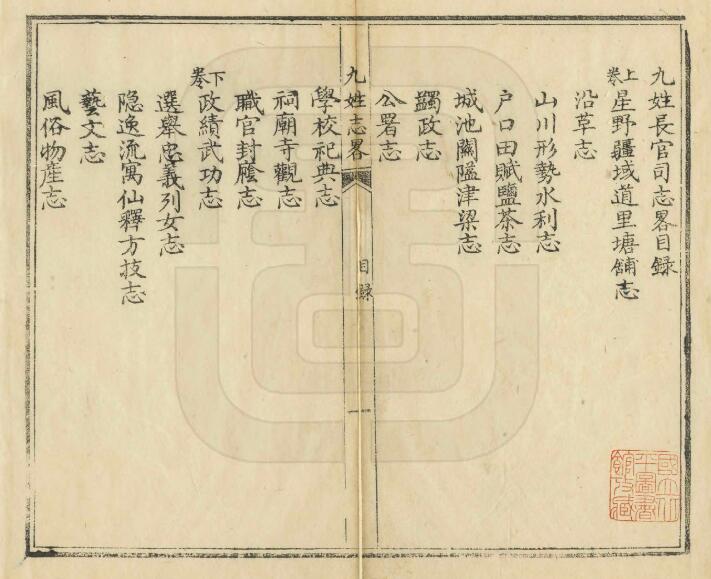 九姓長官司志畧目録
卷上
星野疆域道里塘舖志
沿革志
山川形勢水利志
户口田賦鹽茶志
城池關隘津梁志
蠲政志
公署志
九姓志畧
目録
一
學校祀典志
祠廟寺觀志
職官封廕志
卷下
政績武功志
選舉忠義列女志
隐逸流寓仙釋方技志
藝文志
風俗物産志
國立北
平圖書
館收藏